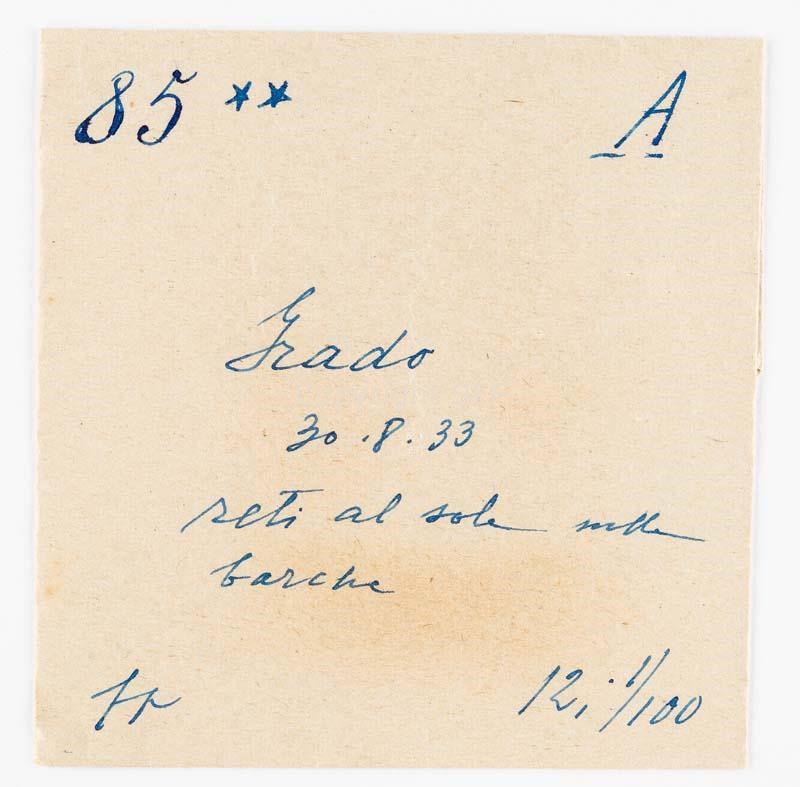 85 ** A
Grado
30.8.33
reti al sole nelle
barche
12, 1/100